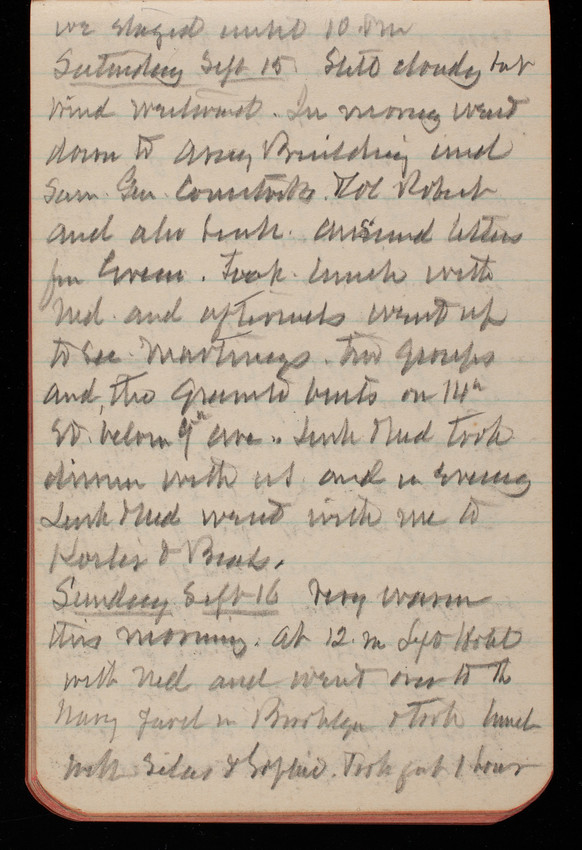 we stayed until 10 P.M
Saturday Sept 15 Still cloudy but
wind westward. In morning went
down to Army Building and
saw Gen Comstock & Col Robert
and also Link. Answered letters
from Green. Took lunch with
Ned and afterwards went up
to see Martinys. two groups
and, the Granite busts on 14th
St. below 9th ave. Link & Ned took
dinner with us and in evening
Link & Ned went with me to
Koster & Beals.
Sunday Sept 16 Very warm
this morning. At 12. m Left Hotel
with Ned and went over to the
Navy Yard in Brooklyn & took lunch
with Silas & Sophie. Took just 1 hour